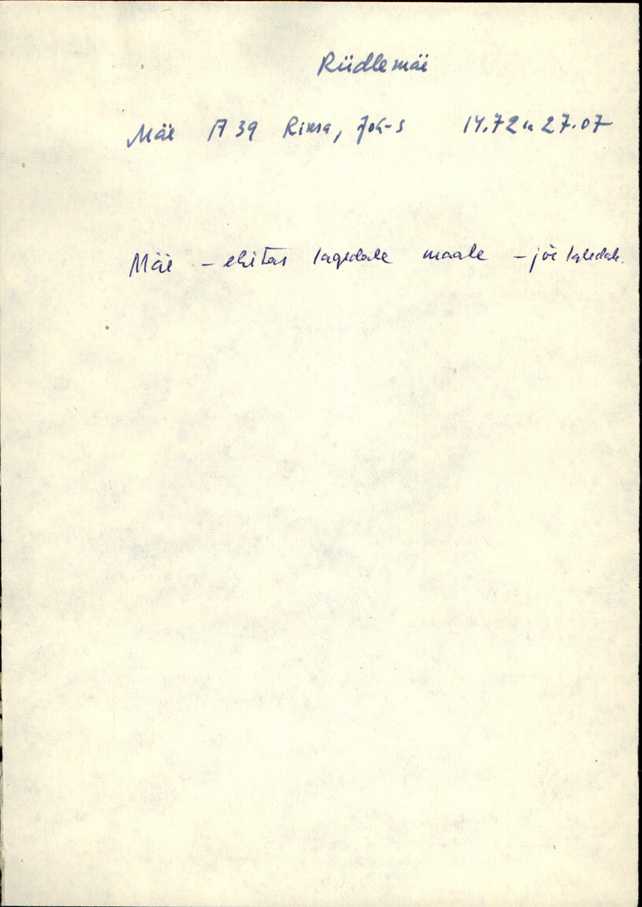 Riidlemäe
Mäe A 39 Riksa, Jok-s 14.72 u 27.07
Mäe – ehitas lagedale maale – jõe lähedale.